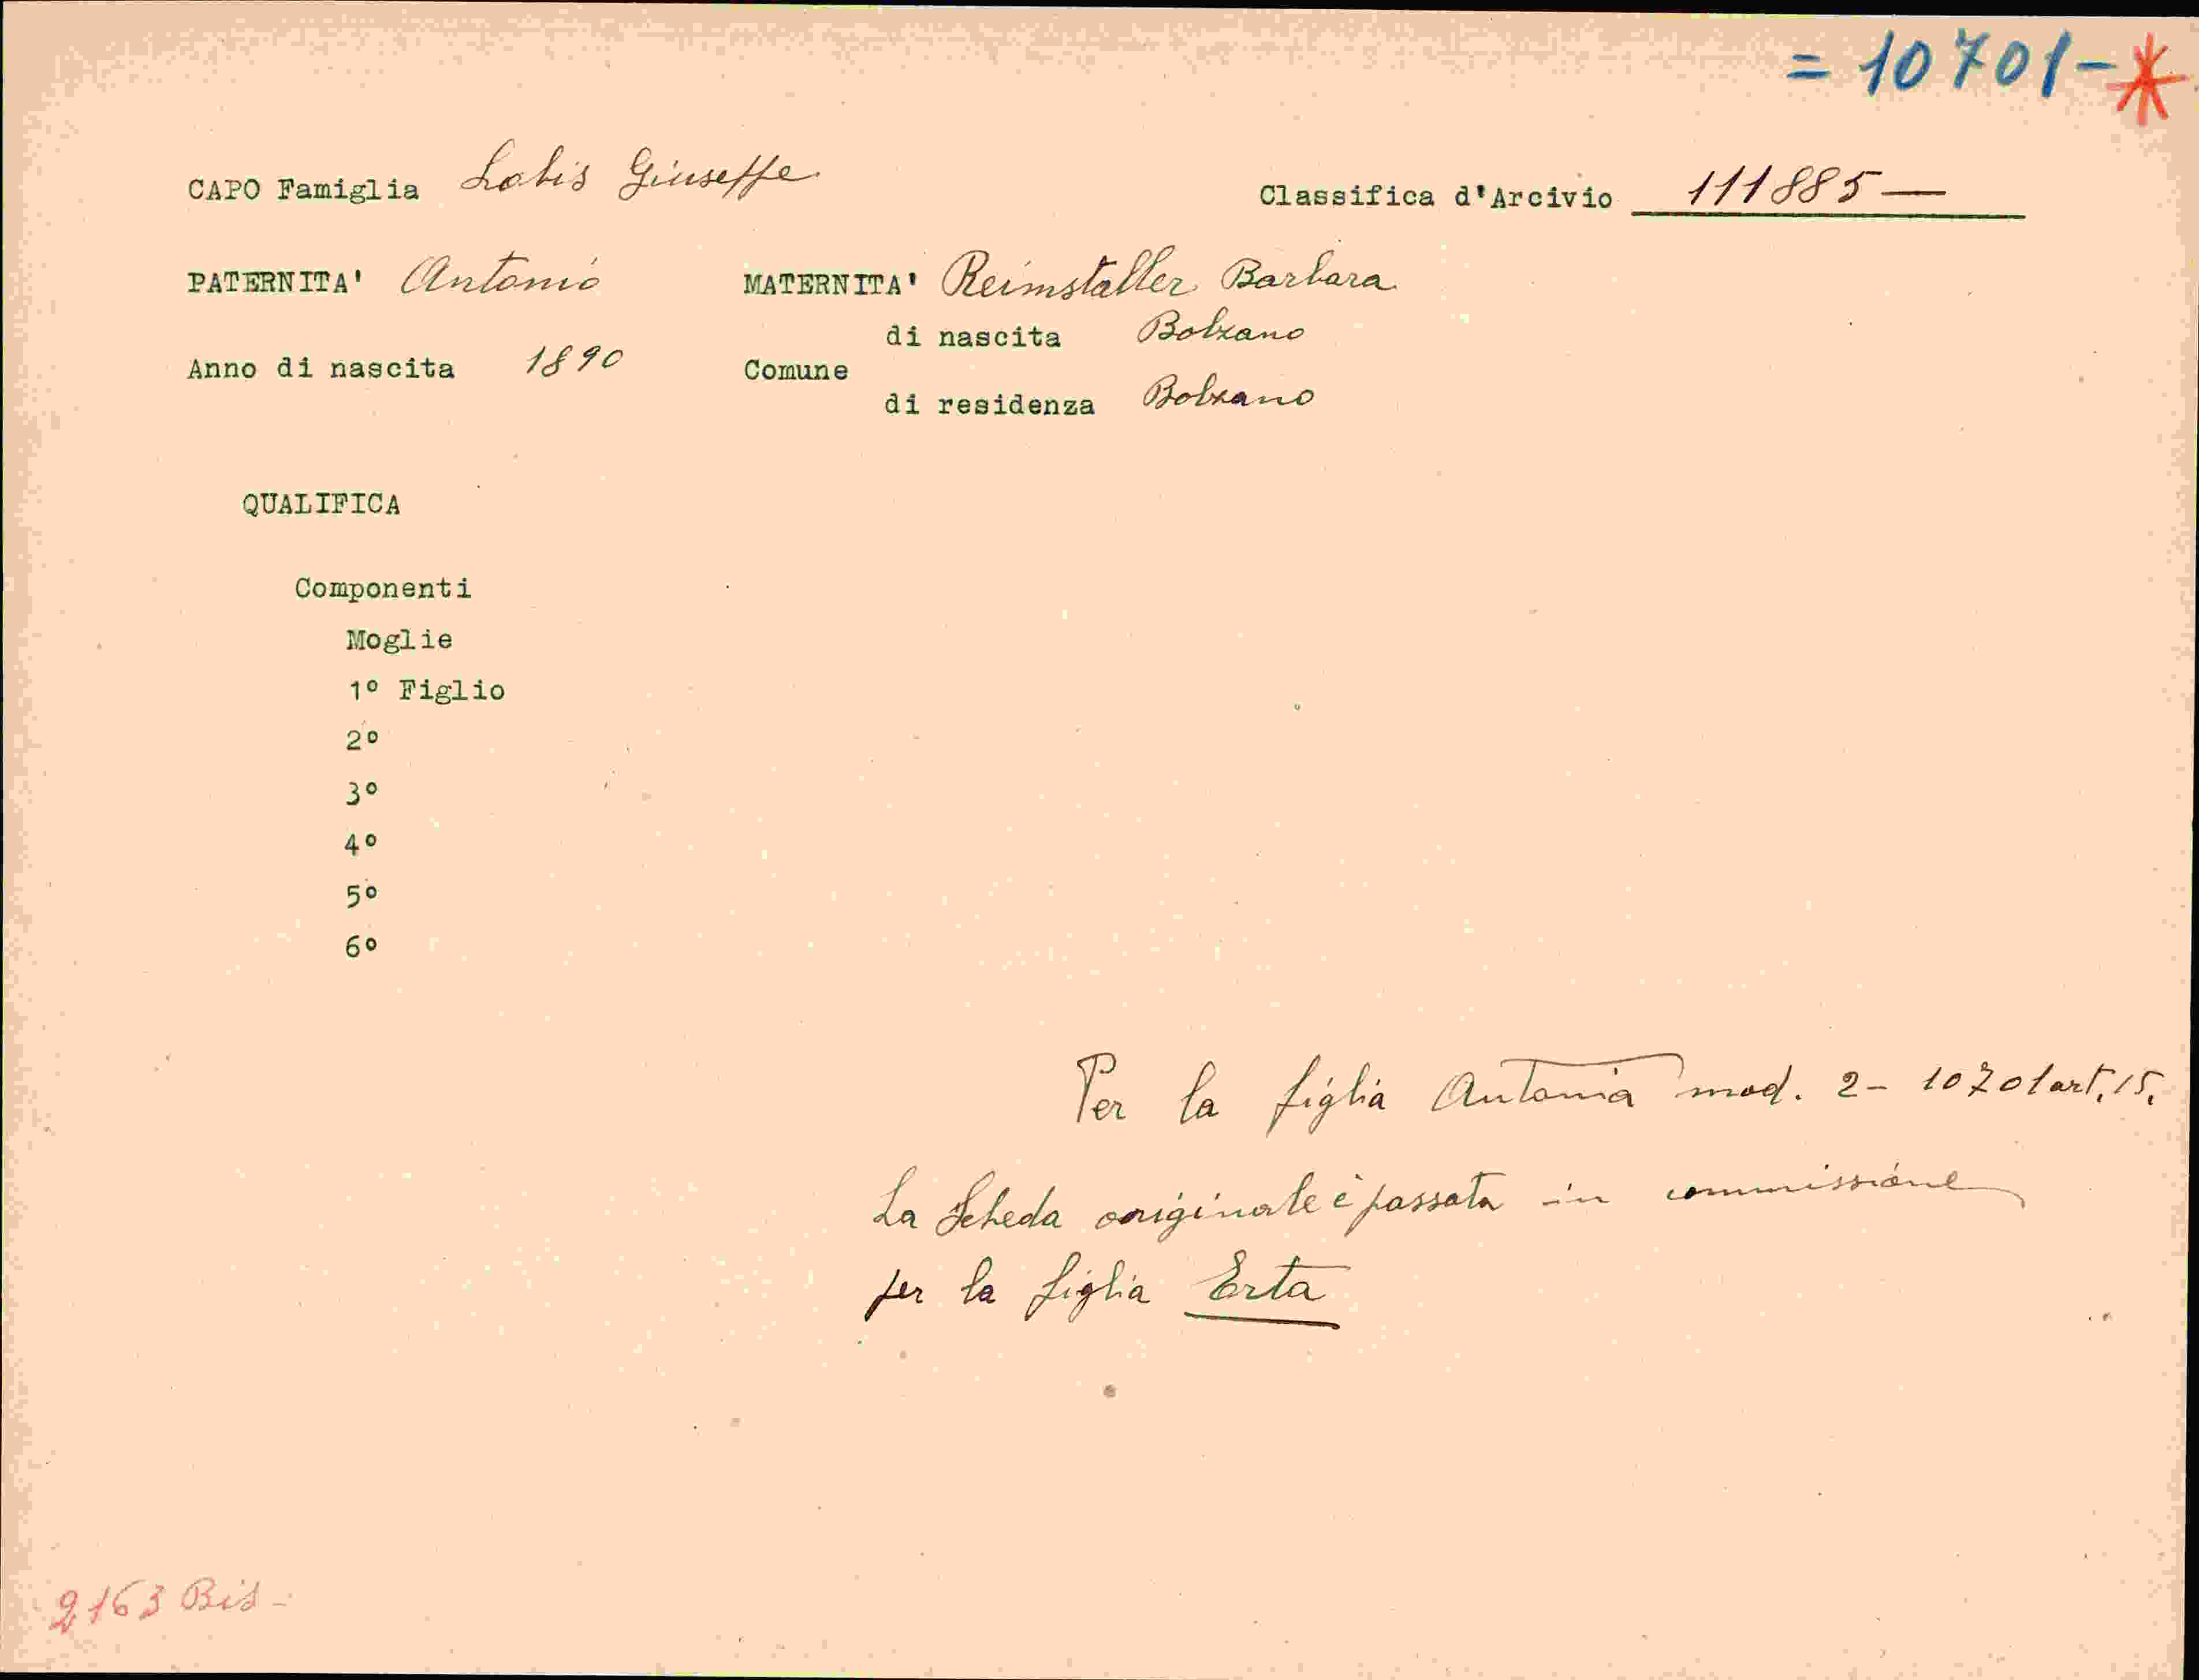 = 10701-*
CAPO Famiglia Lobis Giuseppe
Classifica d'Arcivio 111885—
PATERNITA' Antonio MATERNITA' Barbara
di nascita Bolzano
Anno di nascita 1890 Comune
di residenza Bolzano
QUALIFICA
Componenti
Moglie
1º Figlio
2º
3º
4º
5º
6º
Per la figlia Antonia mod. 2- 10701 art. 15.
La Scheda originale è passata in commissione
per la figlia Erta
2163 Bis-